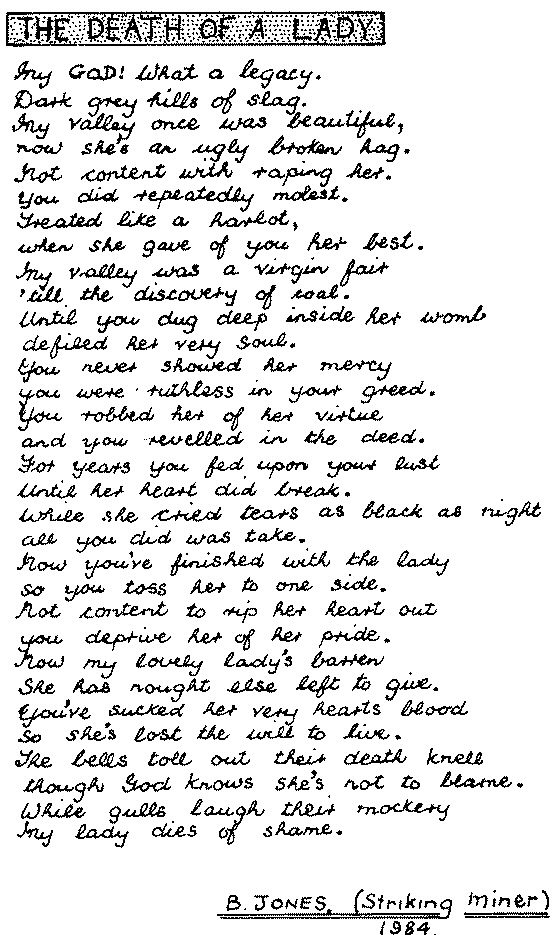 THE DEATH OF A LADY
My GOD! What a legacy.
Dark grey hills of slag.
My valley once was beautiful,
now she's an ugly broken hag.
Not content with raping her.
You did repeatedly molest.
Treated like a harlot,
when she gave of you her best.
My valley was a virgin fair
'till the discovery of coal.
Until you dug deep inside her womb
defiled her very soul.
You never showed her mercy
you were ruthless in your greed.
You robbed her of her virtue
and you revelled in the deed.
For years you fed upon your lust
Until her heart did break.
While she cried tears as black as night
all you did was take.
Now you've finished with the lady
so you toss her to one side.
Not content to rip her heart out
you deprive her of her pride.
Now my lovely lady's barren
She has nought else left to give.
You've sucked her very hearts blood
So she's lost the will to live.
The bells toll out their death knell
though God knows she's not to blame.
While gulls laugh their mockery
My lady dies of shame.
B. JONES. (Striking Miner)
1984.